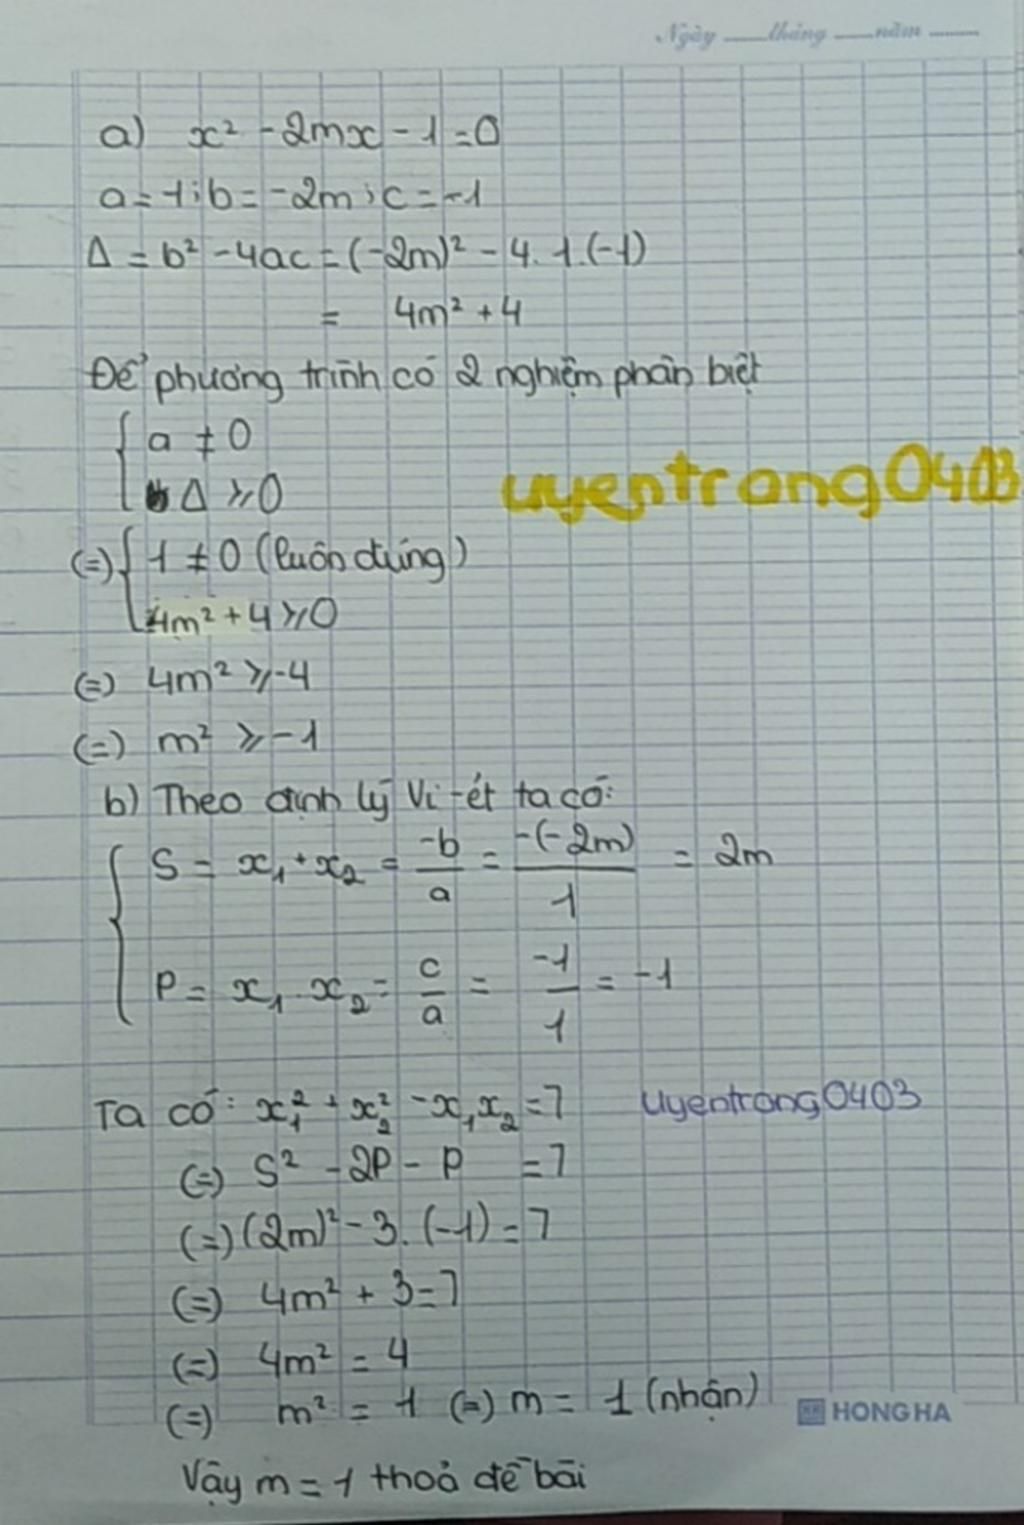 Ngày tháng năm
a) x² - 2mx - 1 = 0
a = 1; b = -2m; c = -1
Δ = b² - 4ac = (-2m)² - 4.1.(-1)
= 4m² + 4
Để phương trình có 2 nghiệm phân biệt
{ a ≠ 0
Δ ⩾ 0
uyentrang0403
(=) { 1 ≠ 0 (luôn đúng)
4m² + 4 ⩾ 0
(=) 4m² ⩾ -4
(=) m² ⩾ -1
b) Theo định lý Vi-ét ta có:
{ S = x₁ + x₂ = -b/a = -(-2m)/1 = 2m
P = x₁ . x₂ = c/a = -1/1 = -1
Ta có: x₁² + x₂² - x₁x₂ = 7 uyentrang0403
(=) S² - 2P - P = 7
(=) (2m)² - 3.(-1) = 7
(=) 4m² + 3 = 7
(=) 4m² = 4
(=) m² = 1 (=) m = 1 (nhận)
HONG HA
Vậy m = 1 thoả đề bài